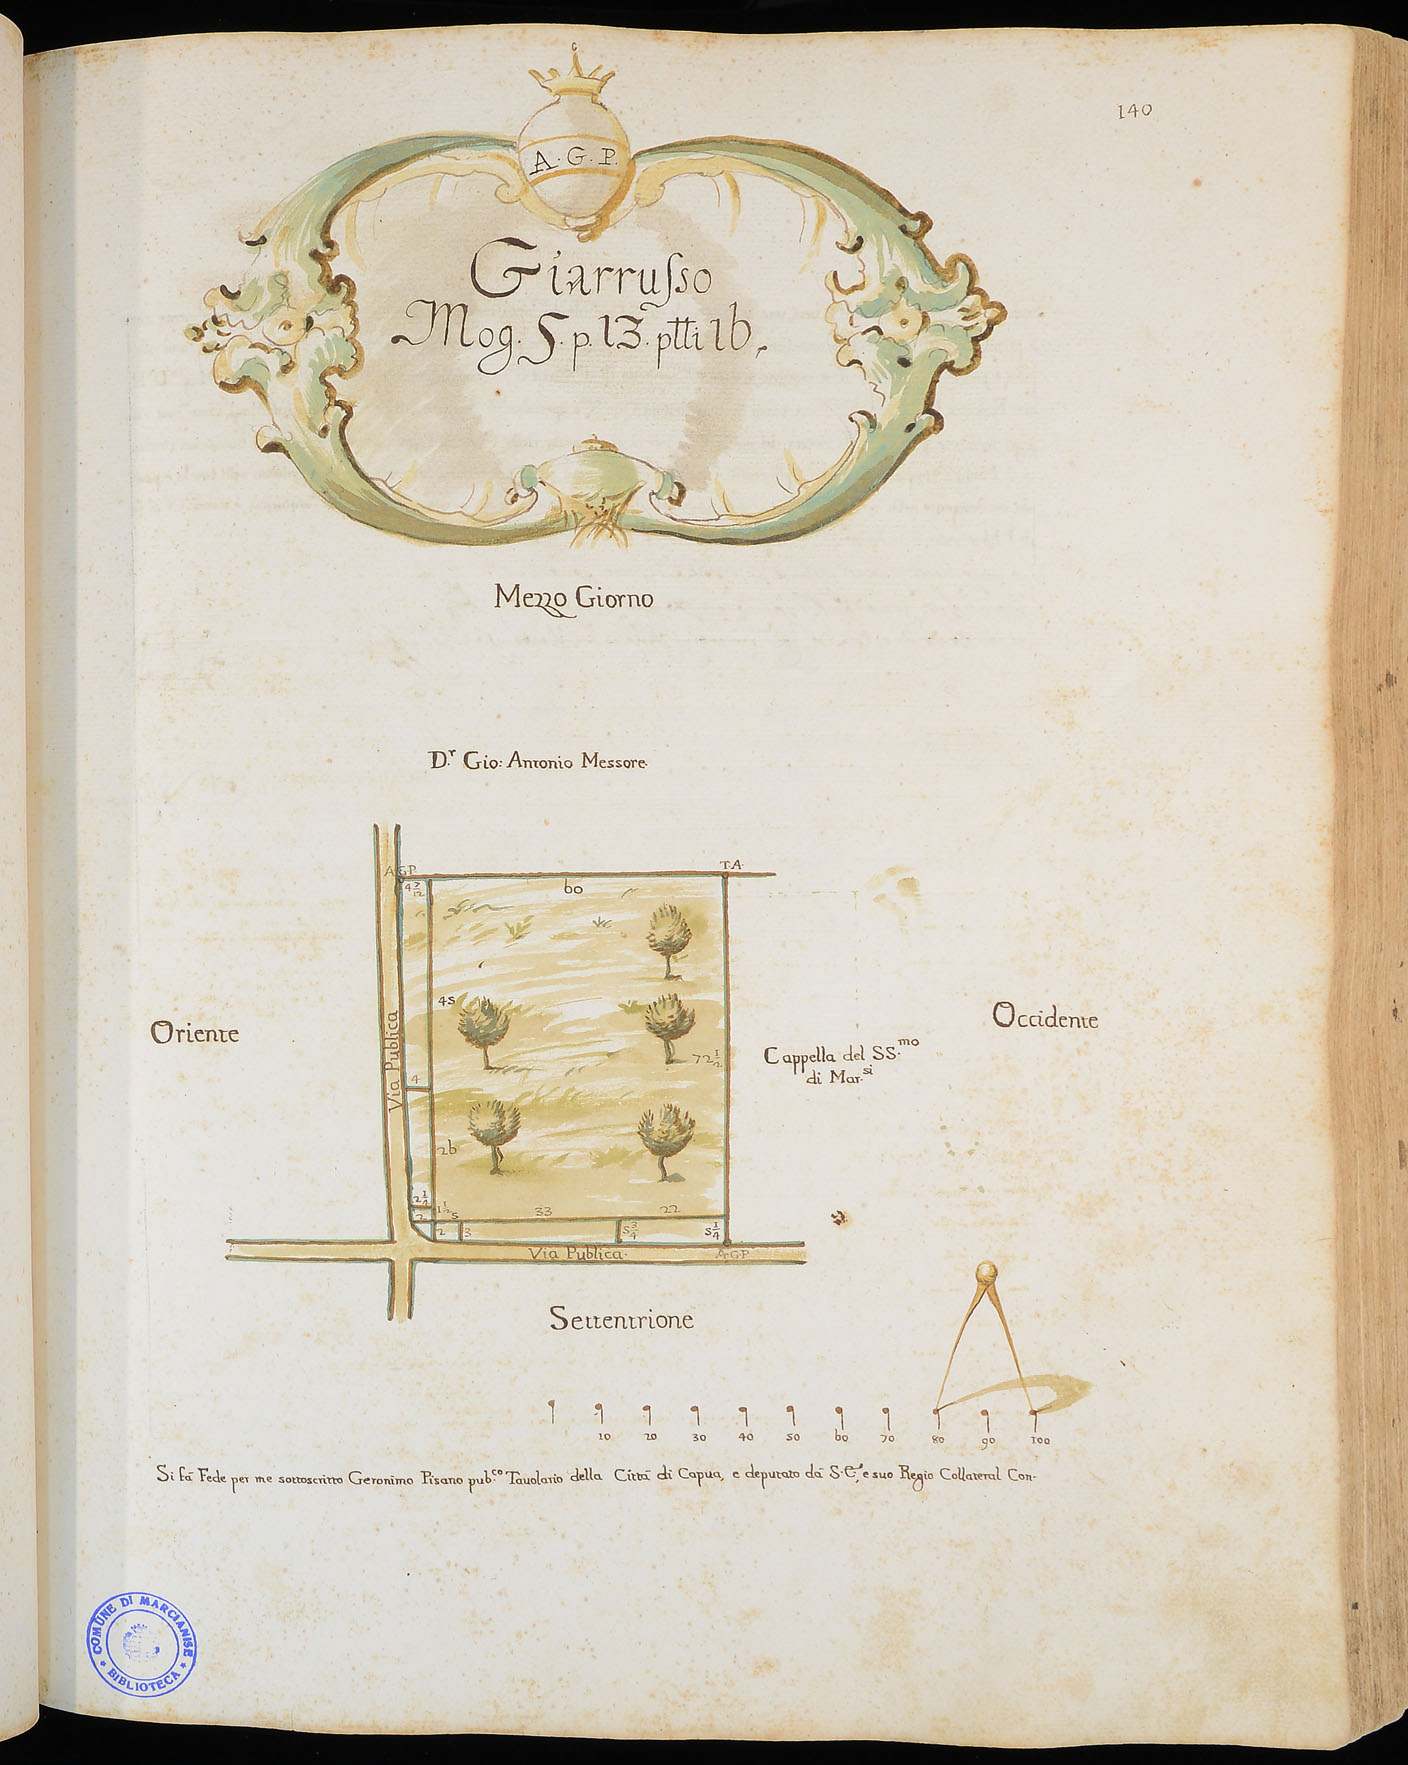 140
A. G. P.
Giarrusso
Mog. 5. p. 13. ptti 16.
Mezzo Giorno
D.r Gio: Antonio Messore.
A.G.P.
T.A.
4 7/12
60
45
Oriente
Occidente
Via Publica
72 1/2
Cappella del SS.mo
di Mar.si
4
26
2 1/4
2
1 1/2
5
33
22
2
3
5 3/4
5 1/4
Via Publica.
A.G.P.
Settentrione
10 20 30 40 50 60 70 80 90 100
Si fà Fede per me sottoscritto Geronimo Pisano pub.co Tavolario della Città di Capua, e deputato dà S. E., e suo Regio Collateral Con-
COMUNE DI MARCIANISE
* BIBLIOTECA *